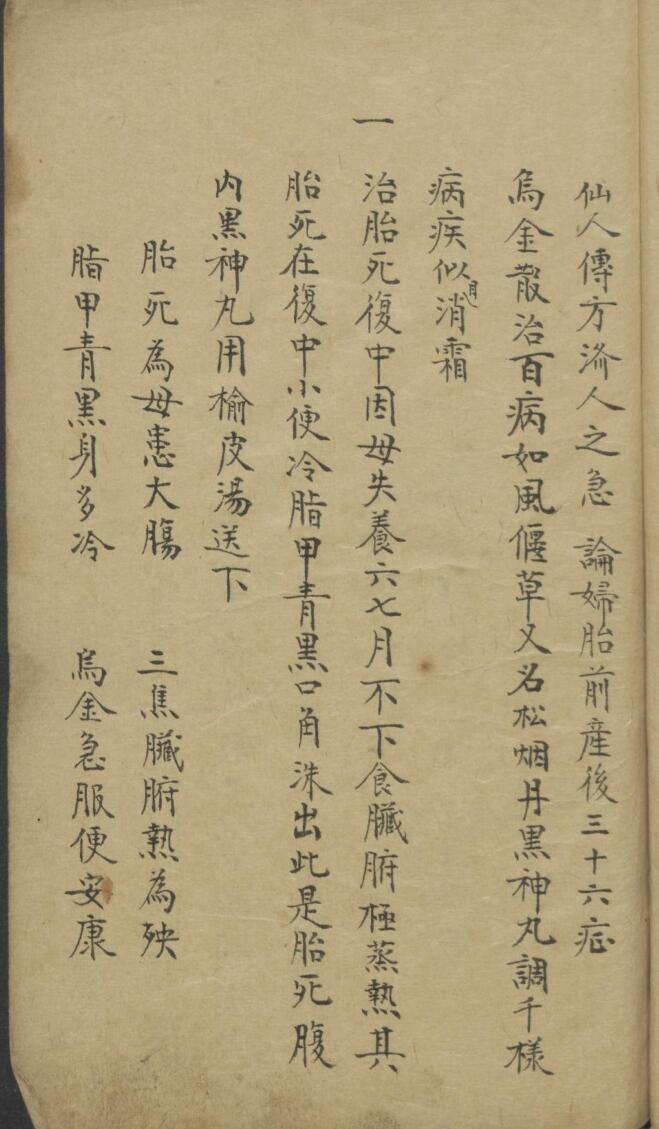 仙人傳方濟人之急 論婦胎前產後三十六症
烏金散治百病如風偃草又名松烟丹黑神丸調千樣
病疾似日消霜
一
治胎死復中因母失養六七月不下食臟腑極蒸熱其
胎死在復中小便冷脂甲青黑口角洙出此是胎死腹
內黑神丸用榆皮湯送下
胎死為母患大腸 三焦臟腑熱為殃
脂甲青黑身多冷 烏金急服便安康